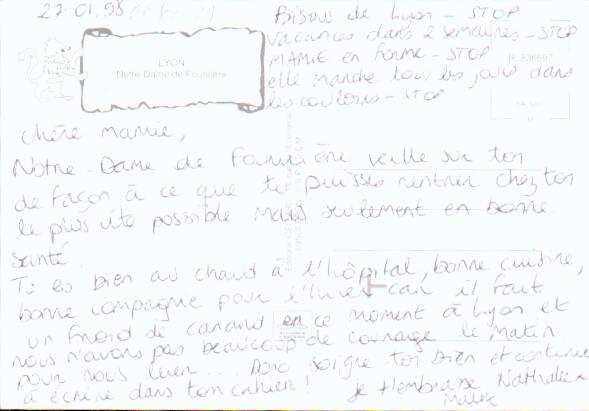 27.01.98
Bisous de Lyon - STOP
vacances dans 2 semaines - STOP
MAMIE en forme - STOP
elle marche tous les jours dans
les couloirs - STOP
LYON
Notre Dame de Fourvière
R. 836697
Chère mamie,
Notre-Dame de Fourvière veille sur toi
de façon à ce que tu puisses rentrer chez toi
le plus vite possible mais seulement en bonne
santé.
Tu es bien au chaud à l'hôpital, bonne cuisine,
bonne compagnie pour l'hiver car il fait
un froid de canard en ce moment à Lyon et
nous n'avons pas beaucoup de courage le matin
pour nous lever... Donc soigne toi bien et continue
à écrire dans ton cahier! Je t'embrasse Nathalie